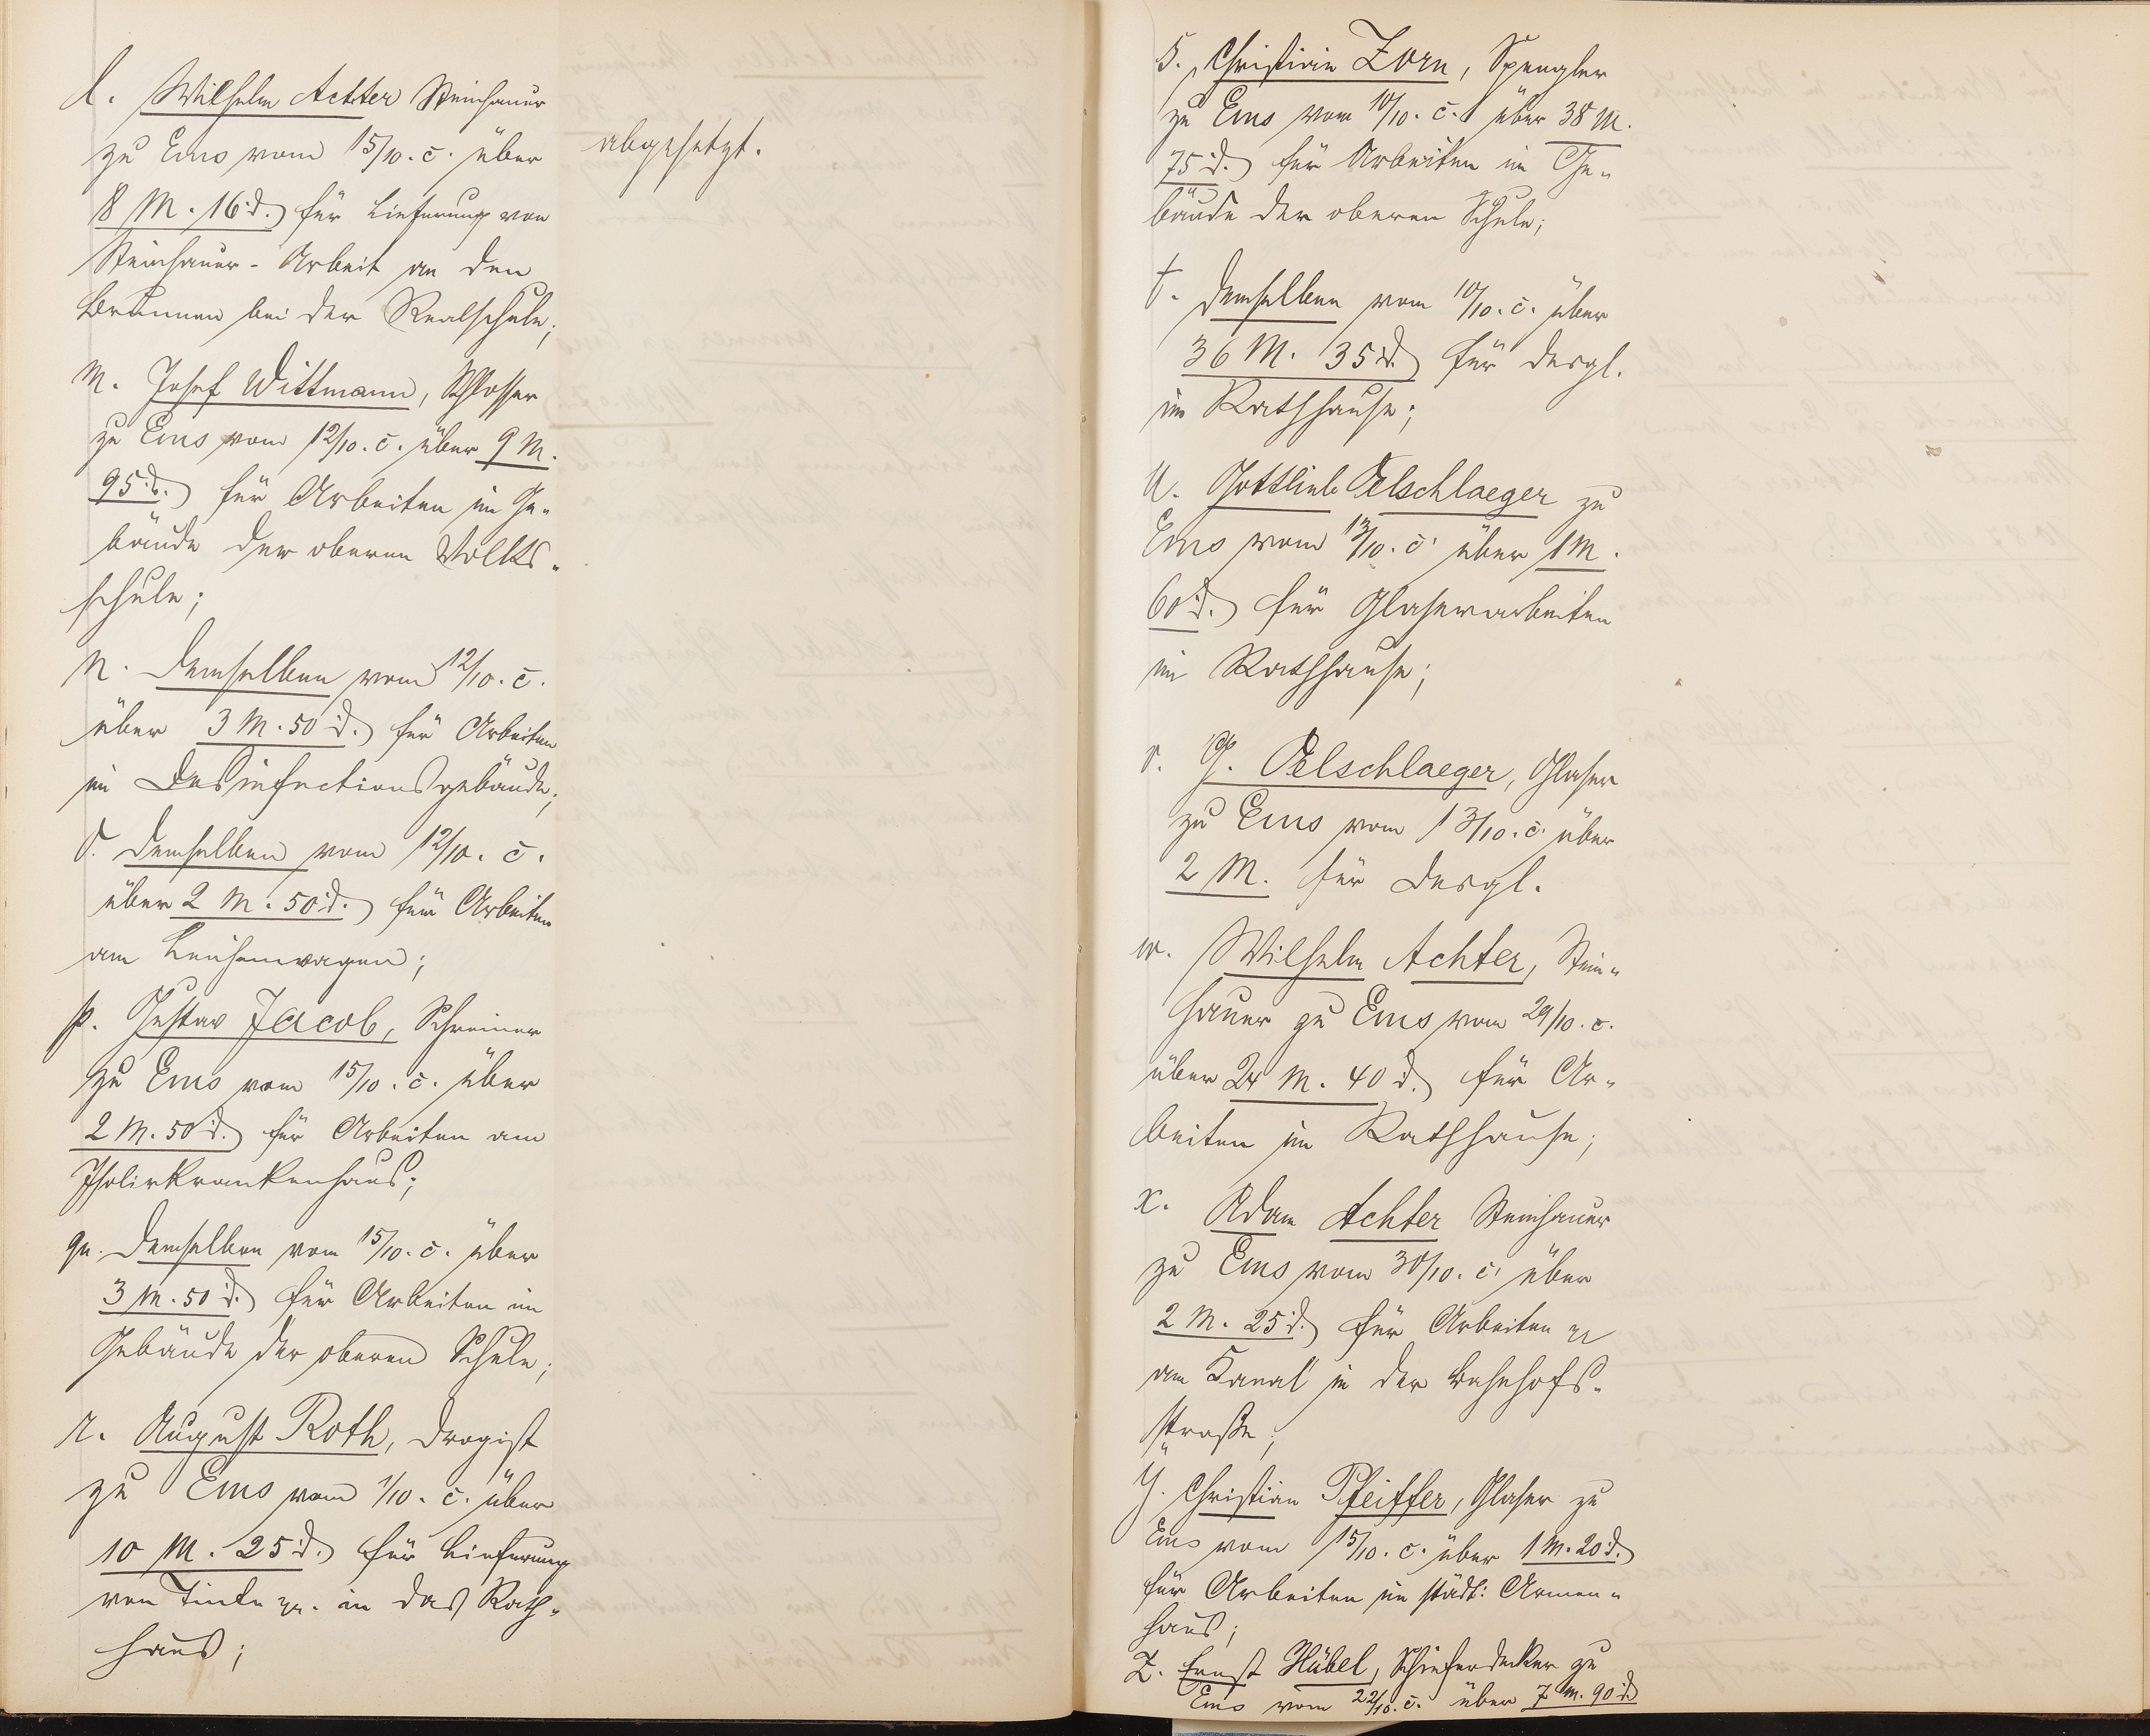 l. Wilhelm Achter Steinhauer
zu Ems vom 15/10. c. über
8 M. 16 d. für Lieferung von
Steinhauer-Arbeit an den
Brunnen bei der Realschule;
abgesetzt.
m. Josef Wittmann, Schlosser
zu Ems vom 12/10. c. über 9 M.
95 d. für Arbeiten im Ge-
bäude der oberen Volks-
schule;
n. demselben vom 12/10. c.
über 3 M. 50 d. für Arbeiten
im Desinfectionsgebäude;
o. demselben vom 12/10. c.
über 2 M. 50 d. für Arbeiten
am Leichenwagen;
p. Gustav Jacob, Schreiner
zu Ems vom 15/10. c. über
2 M. 50 d. für Arbeiten am
Isolirkrankenhaus;
qu. demselben vom 15/10. c. über
3 M. 50 d. für Arbeiten im
Gebäude der oberen Schule;
r. August Roth, Drogist
zu Ems vom 1/10. c. über
10 M. 25 d. für Lieferung
von Tinte in das Rath-
haus;
s. Christian Zorn, Spengler
zu Ems vom 10/10. c. über 38 M.
75 d. für Arbeiten im Ge-
bäude der oberen Schule;
t. demselben vom 10/10. c. über
36 M. 35 d. für desgl.
im Rathhause;
u. Gottlieb Oelschlaeger zu
Ems vom 13/10. c. über 1 M.
60 d. für Glaserarbeiten
im Rathhause;
v. G. Oelschlaeger, Glaser
zu Ems vom 13/10. c. über
2 M. für desgl.
w. Wilhelm Achter, Stein-
hauer zu Ems vom 29/10. c.
über 24 M. 40 d. für Ar-
beiten im Rathhause;
x. Adam Achter Steinhauer
zu Ems vom 30/10. c. über
2 M. 25 d. für Arbeiten
am Kanal in der Bahnhofs-
straße;
y. Christian Pfeiffer, Glaser zu
Ems vom 15/10. c. über 1 M. 20 d.
für Arbeiten im städt: Armen-
haus;
z. Ernst Hübel, Schieferdecker zu
Ems vom 22/10. c. über 7 M. 90 d.